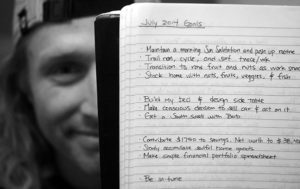 July 2014 Goals
· Maintain a morning Sun Salutation and push up routine
· Trail run, cycle, and surf
· Transition to raw fruit and nuts as work snack
· Stock home with nuts, fruits, veggies, & fish
· Build my bed & design side table
· Make conscious decision to sell car & act on it
· Eat a South Swell with
· Contribute $1750 to savings. Net worth to
· Slowly accumulate soulful home goods
· Make simple financial portfolio spreadsheet
· Be in-tune